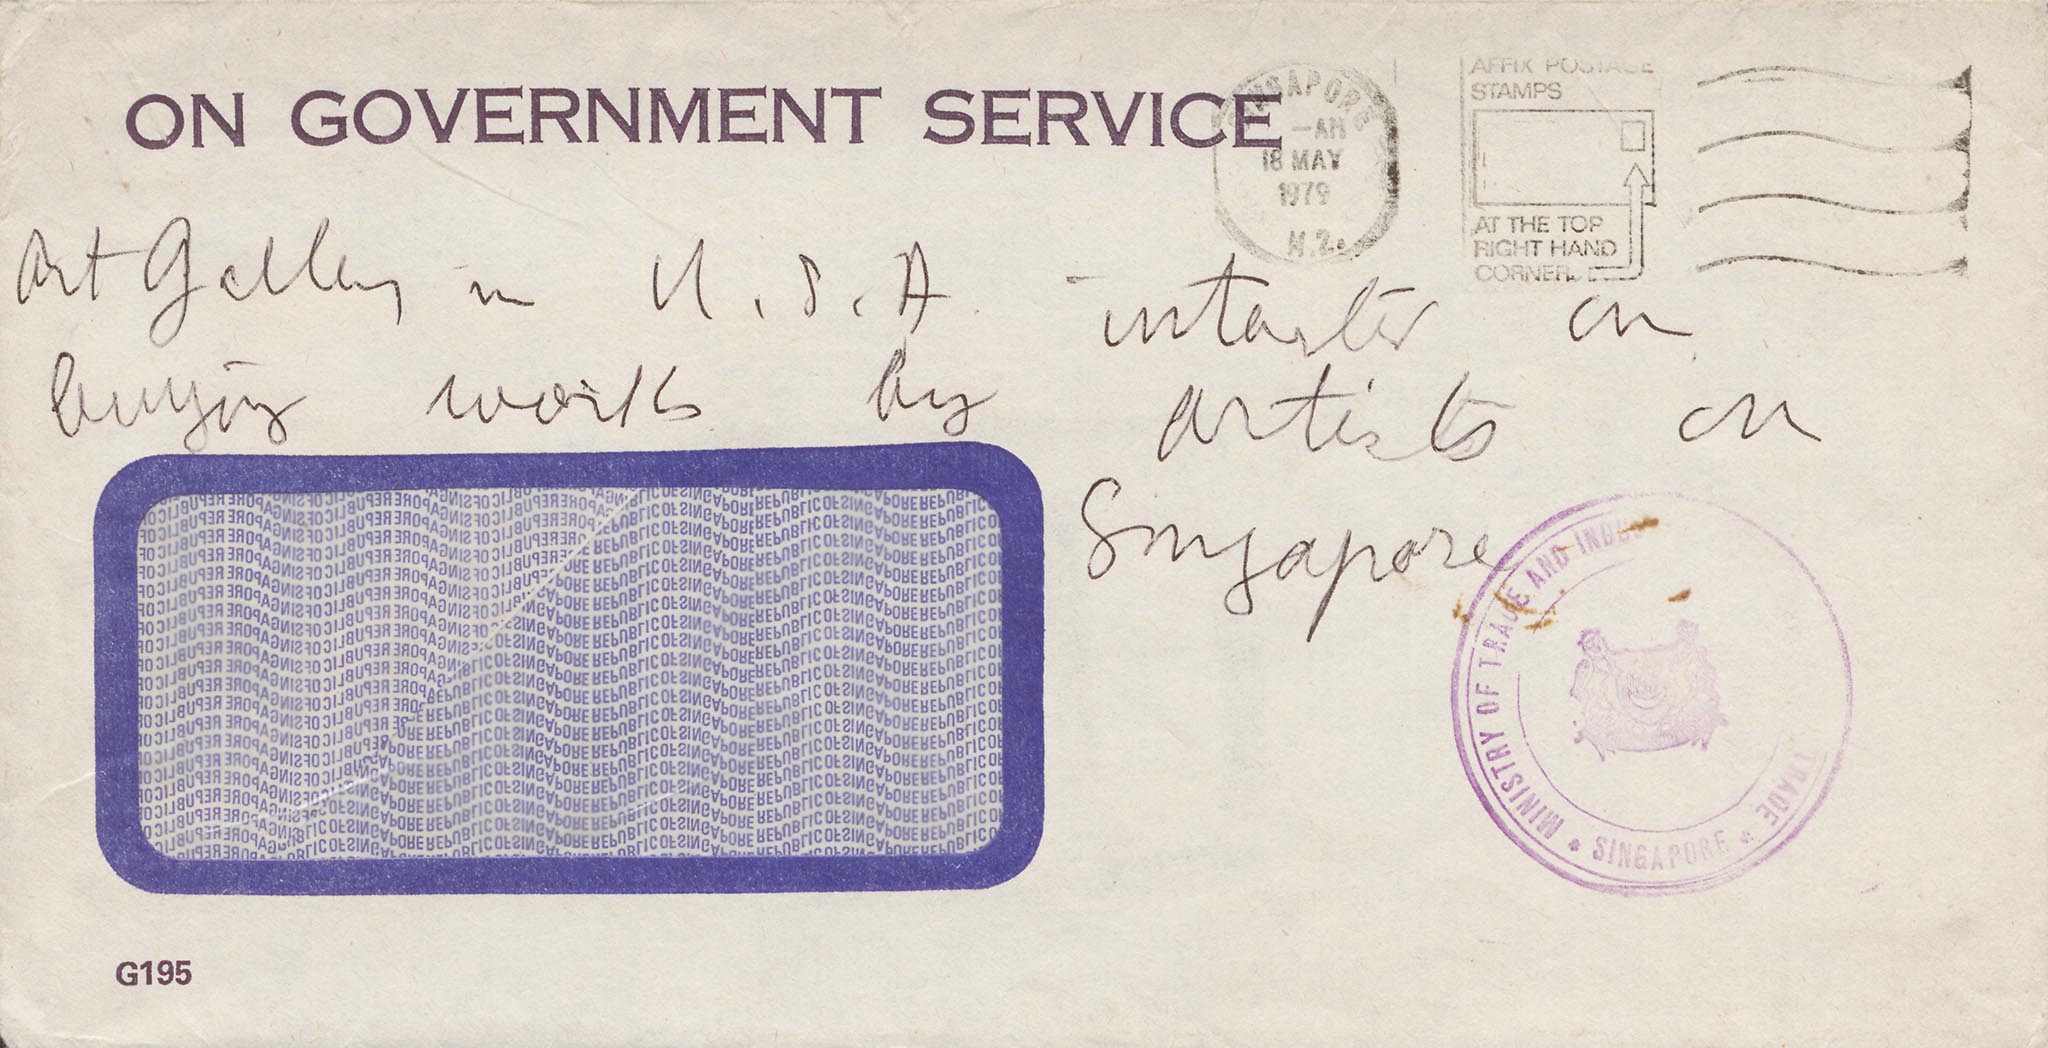 ON GOVERNMENT SERVICE
SINGAPORE
-AM
18 MAY
1979
AFFIX POSTAGE
STAMPS
AT THE TOP
RIGHT HAND
CORNER
Art Gallery in U.S.A. in
buying works by artists in
Singapore
MINISTRY OF TRADE AND
TRADE
* SINGAPORE *
REPUBLIC OF SINGAPORE
G195